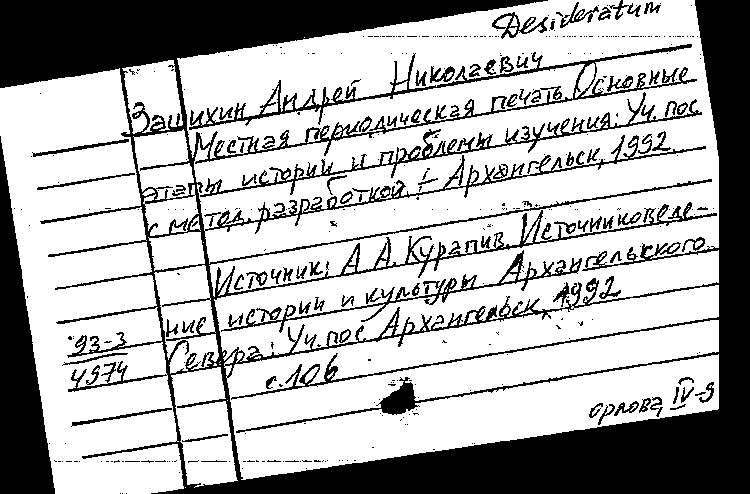 Desideratum
Зашихин, Андрей Николаевич
Местная периодическая печать. Основные
этапы истории и проблемы изучения: Уч. пос.
с метод. разработкой. - Архангельск, 1992.
Источник: А. А. Куратив. Источниковеде-
ние истории и культуры Архангельского
Севера: Уч. пос. Архангельск, 1992
с. 106
93-3
4974
орлова, IV-9